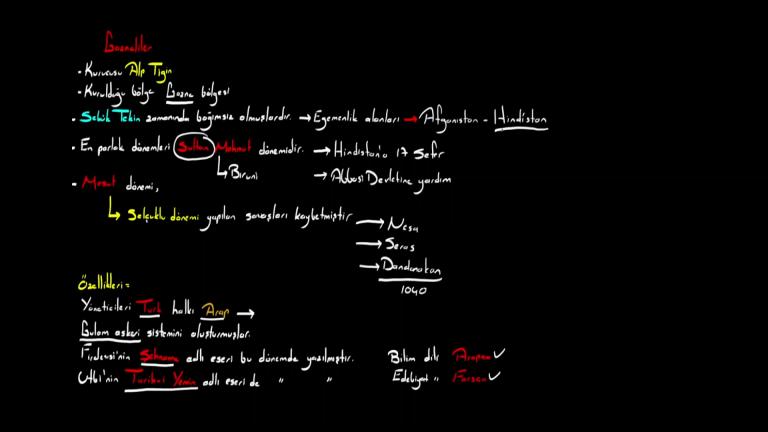 Gazneliler
- Kurucusu Alp Tigin
- Kurulduğu bölge Gazne bölgesi
- Sebük Tekin zamanında bağımsız olmuşlardır. → Egemenlik alanları → Afganistan - Hindistan
- En parlak dönemleri Sultan Mahmut dönemidir. → Hindistan'a 17 Sefer
→ Biruni → Abbasi Devletine yardım
- Mesut dönemi,
→ Selçuklu dönemi yapılan savaşları kaybetmiştir → Nesa
→ Seras
→ Dandanakan
1040
Özellikleri =
Yöneticileri Türk halkı Arap →
Gulam askeri sistemini oluşturmuşlar.
Firdevsi'nin Şehname adlı eseri bu dönemde yazılmıştır. Bilim dili Arapça ✓
Utbi'nin Tarihul Yemin adlı eseri de " " Edebiyat " Farsça ✓